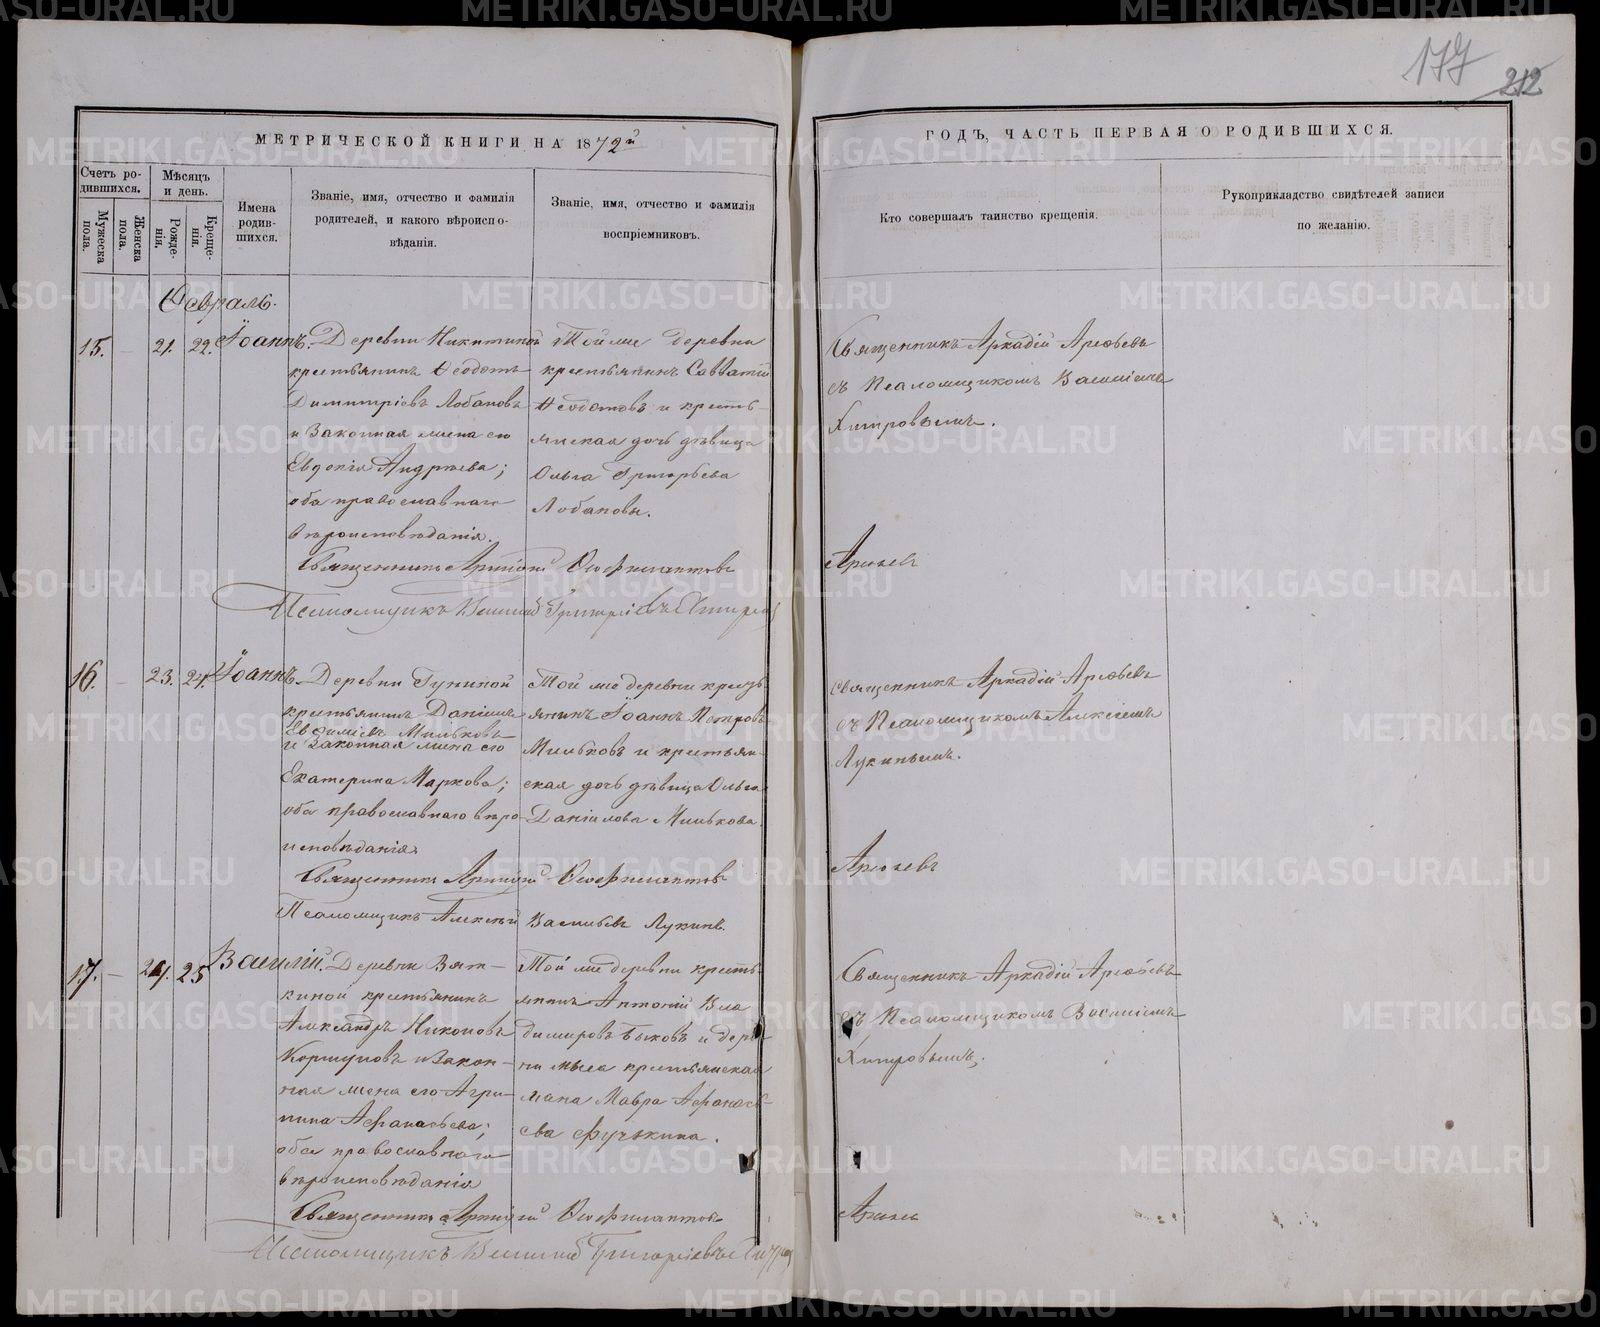 177
212
МЕТРИЧЕСКОЙ КНИГИ НА 1872й
ГОДЪ, ЧАСТЬ ПЕРВАЯ О РОДИВШИХСЯ.
Счетъ ро-
дившихся.
Мужеска
пола.
Женска
пола.
Мѣсяцъ
и день.
Рожде-
нія.
Креще-
нія.
Имена
родив-
шихся.
Званіе, имя, отчество и фамилія
родителей, и какого вѣроиспо-
вѣданія.
Званіе, имя, отчество и фамилія
воспріемниковъ.
Кто совершалъ таинство крещенія.
Рукоприкладство свидѣтелей записи
по желанію.
Февраль.
15. — 21. 22. Іоаннъ.
Деревни Никитиной
крестьянинъ Ѳеодотъ
Димитріевъ Лобановъ
и законная жена его
Евдокія Андреева;
оба православнаго
вѣроисповѣданія.
Той же деревни
крестьянинъ Савватій
Ѳеодотовъ и кресть-
янская дочь дѣвица
Ольга Григорьева
Лобановы.
Священникъ Аркадій Арефьевъ
съ Псаломщикомъ Василіемъ
Хитровымъ.
Священникъ Аркадій Феофилактовъ
Арефьевъ
Псаломщикъ Василій Григоріевъ
16. — 23. 24. Іоаннъ.
Деревни Гуниной
крестьянинъ Даніилъ
Евфиміевъ Мильковъ
и законная жена его
Екатерина Маркова;
оба православнаго вѣро-
исповѣданія.
Той же деревни кресть-
янинъ Іоаннъ Петровъ
Мильковъ и крестьян-
ская дочь дѣвица Ольга
Даніилова Милькова.
Священникъ Аркадій Арефьевъ
съ Псаломщикомъ Алексіемъ
Лукинымъ.
Священникъ Аркадій Феофилактовъ
Арефьевъ
Псаломщикъ Алексѣй Васильевъ Лукинъ.
17. — 24. 25 Василій.
Деревни Вят-
киной крестьянинъ
Александръ Никоновъ
Коршуновъ и закон-
ная жена его Агри-
пина Афанасьева;
оба православнаго
вѣроисповѣданія
Той же деревни кресть-
янинъ Антоній Вла
димировъ Быковъ и дерев-
ни Мыса крестьянская
жена Мавра Афанась-
ева
Священникъ Аркадій Арефьевъ
съ Псаломщикомъ Василіемъ
Хитровымъ.
Священникъ Аркадій Феофилактовъ
Арефьевъ
Псаломщикъ Василій Григоріевъ
METRIKI.GASO-URAL.RU